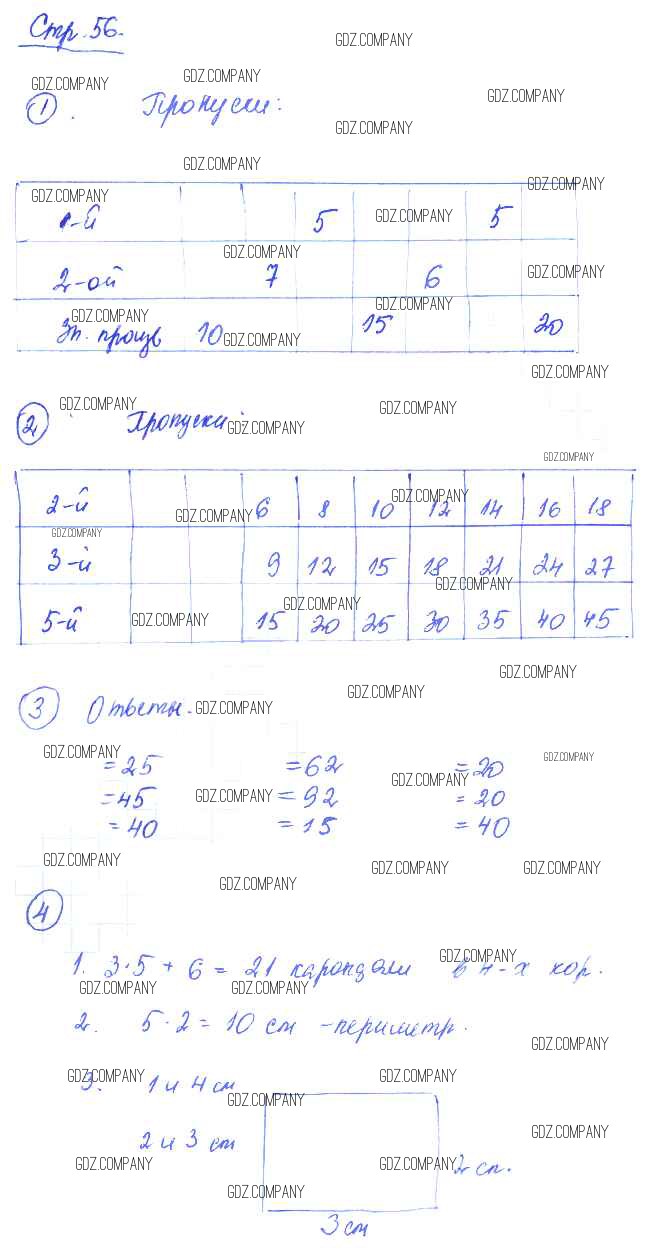 Стр. 56.
GDZ.COMPANY
GDZ.COMPANY GDZ.COMPANY
GDZ.COMPANY
1. Пропуски:
GDZ.COMPANY
GDZ.COMPANY
GDZ.COMPANY
GDZ.COMPANY
1-й 5 GDZ.COMPANY 5
GDZ.COMPANY
2-ой 7 6 GDZ.COMPANY
GDZ.COMPANY
GDZ.COMPANY
Зн. произв 10 GDZ.COMPANY 15 20
GDZ.COMPANY
GDZ.COMPANY GDZ.COMPANY
2 Пропуски GDZ.COMPANY
GDZ.COMPANY
2-й GDZ.COMPANY 6 8 10 GDZ.COMPANY 12 14 16 18
GDZ.COMPANY
3-й 9 12 15 18 21 24 27
GDZ.COMPANY
GDZ.COMPANY
5-й GDZ.COMPANY 15 20 25 30 35 40 45
GDZ.COMPANY
GDZ.COMPANY
3 Ответы. GDZ.COMPANY
GDZ.COMPANY GDZ.COMPANY
= 25 = 62 = 20
GDZ.COMPANY
= 45 GDZ.COMPANY = 92 = 20
= 40 = 15 = 40
GDZ.COMPANY GDZ.COMPANY GDZ.COMPANY
GDZ.COMPANY
4
GDZ.COMPANY
1. 3·5 + 6 = 21 карандаш в 4-х кор.
GDZ.COMPANY GDZ.COMPANY
2. 5·2 = 10 см - периметр.
GDZ.COMPANY
GDZ.COMPANY GDZ.COMPANY
3. 1 и 4 см
GDZ.COMPANY
GDZ.COMPANY
2 и 3 см
GDZ.COMPANY GDZ.COMPANY 2 см.
GDZ.COMPANY
3 см